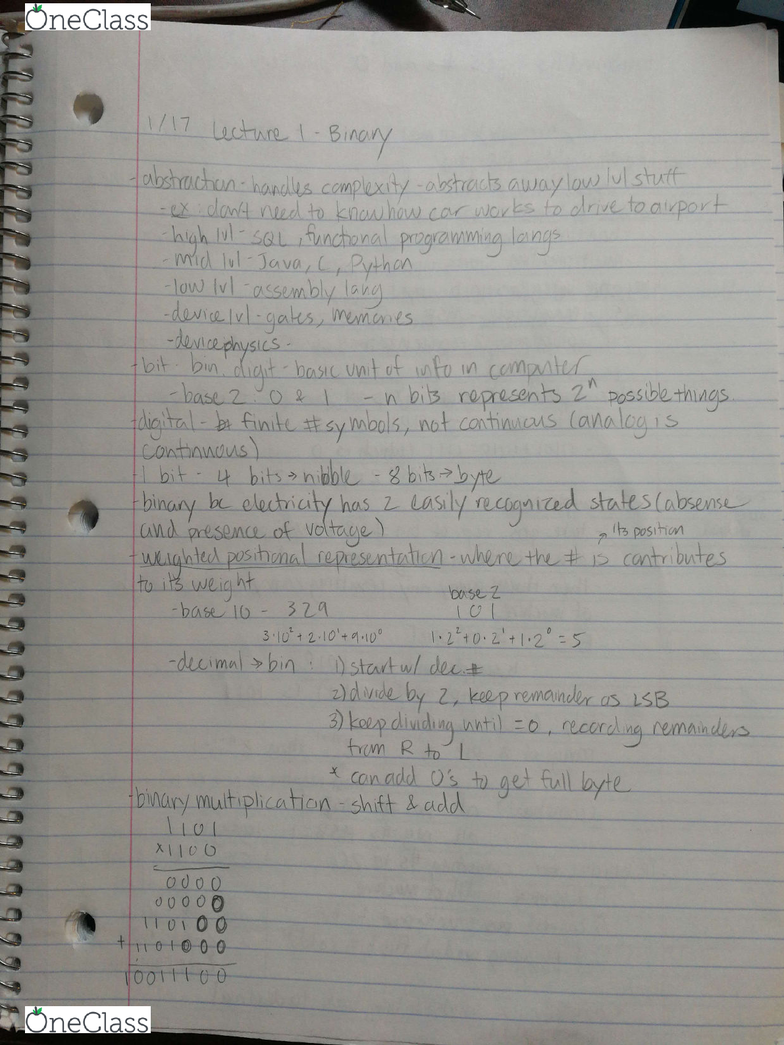 OneClass
1/17 Lecture 1 - Binary
- abstraction - handles complexity - abstracts away low lvl stuff
- ex: don't need to know how car works to drive to airport
- high lvl - SQL, functional programming langs
- mid lvl - Java, C, Python
- low lvl - assembly lang
- device lvl - gates, memories
- device physics -
- bit - bin. digit - basic unit of info in computer
- base 2: 0 & 1 - n bits represents 2ⁿ possible things
- digital - finite # symbols, not continuous (analog is
continuous)
- 1 bit - 4 bits → nibble - 8 bits → byte
- binary bc electricity has 2 easily recognized states (absense
and presence of voltage)
its position
- weighted positional representation - where the # is contributes
to its weight
base 2
- base 10 - 329 101
3·10²+2·10¹+9·10⁰ 1·2²+0·2¹+1·2⁰=5
- decimal → bin: 1) start w/ dec. #
2) divide by 2, keep remainder as LSB
3) keep dividing until =0, recording remainders
from R to L
* can add 0's to get full byte
- binary multiplication - shift & add
1101
×1100
0000
00000
110100
+ 1101000
10011100
OneClass